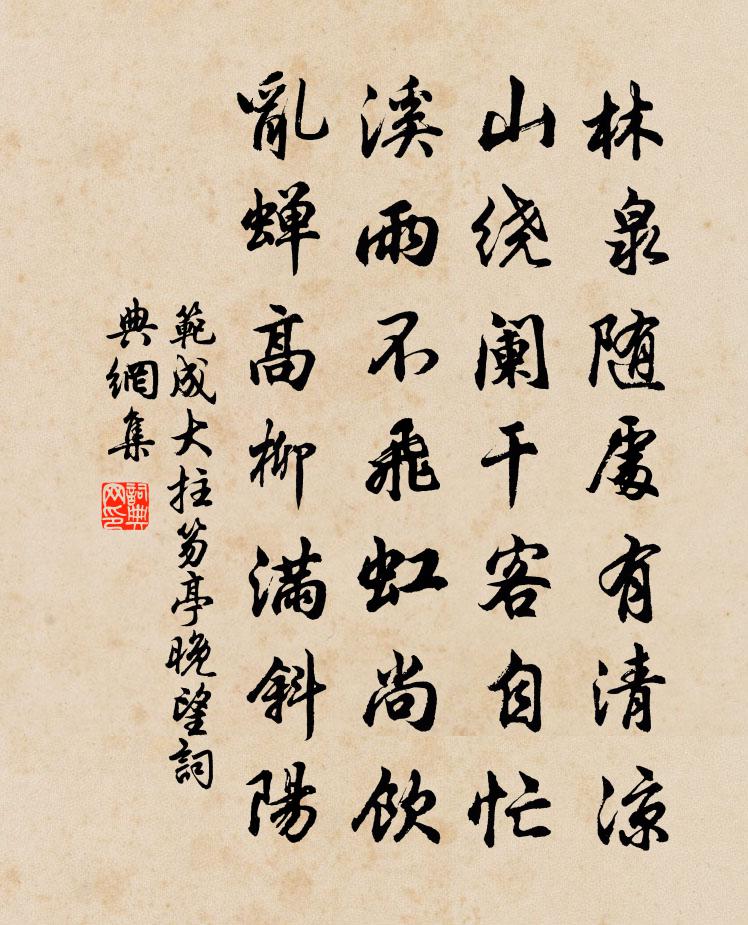 林泉随處有清涼
山绕阑干客自忙
溪雨不飛虹尚飲
亂蝉高柳满斜陽
範成大拄笏亭晚望詞
典網集
詞典網印